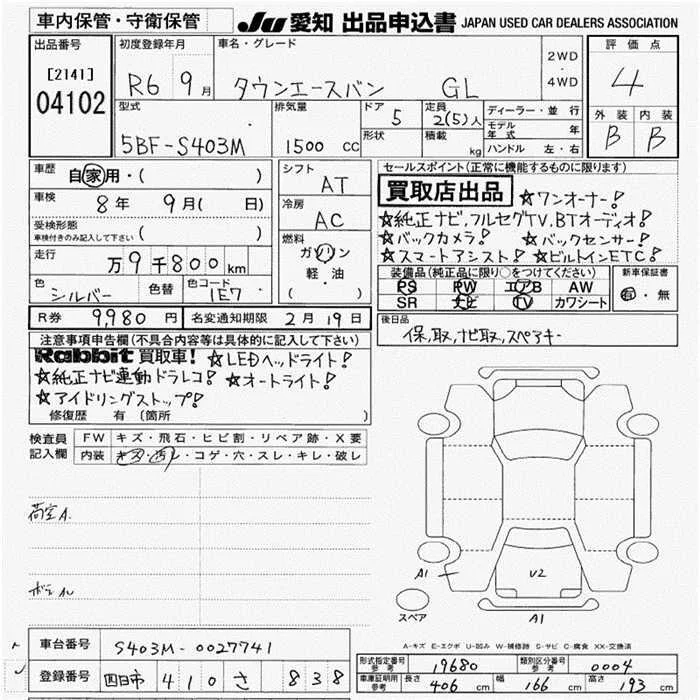 車内保管・守衛保管 JU 愛知 出品申込書 JAPAN USED CAR DEALERS ASSOCIATION
出品番号 初度登録年月 車名・グレード 評価点
[2141] R6 9月 タウンエースバン GL 2WD・4WD 4
04102 型式 排気量 ドア 定員 ディーラー・並行 外装 内装
5BF-S403M 1500 CC 5 2(5)人 モデル年式 年 B B
形状 積載 kg ハンドル 左・右
車歴 自家用・( ) シフト セールスポイント(正常に機能するものに限ります)
AT 買取店出品 ☆ワンオーナー!
車検 8年 9月( 日) 冷房 ☆純正ナビ,フルセグTV,BTオーディオ!
受検形態 AC ☆バックカメラ! ☆バックセンサー!
車検付きのみ記入して下さい ( ) 燃料 ☆スマートアシスト! ☆ビルトインETC!
走行 万9千800km ガソリン 装備品(純正品に限り○をつけてください) 新車保証書
軽油 PS PW エアB AW 有・無
色 シルバー 色替 色コード 1E7 ( ) SR ナビ TV カワシート
R券 9,980円 名変通知期限 2月19日 後日品
注意事項申告欄(不具合内容等は具体的に記入して下さい) 保,取,ナビ取,スペアキー
Rabbit 買取車! ☆LEDヘッドライト!
☆純正ナビ連動ドラレコ! ☆オートライト!
☆アイドリングストップ!
修復歴 有(箇所 )
検査員 FW キズ・飛石・ヒビ割・リペア跡・X要
記入欄 内装 キズ・汚レ・コゲ・穴・スレ・キレ・破レ
荷室A.
A1 U2
スペア A1
A-キズ E-エクボ U-凹み W-補修跡 S-サビ C-腐食 XX-交換済
車台番号 S403M-0027741
登録番号 四日市 410 さ 838
形式指定番号 参考 19680 類別区分番号 参考 0004
車庫証明用 参考 長さ 406 cm 幅 166 cm 高さ 193 cm